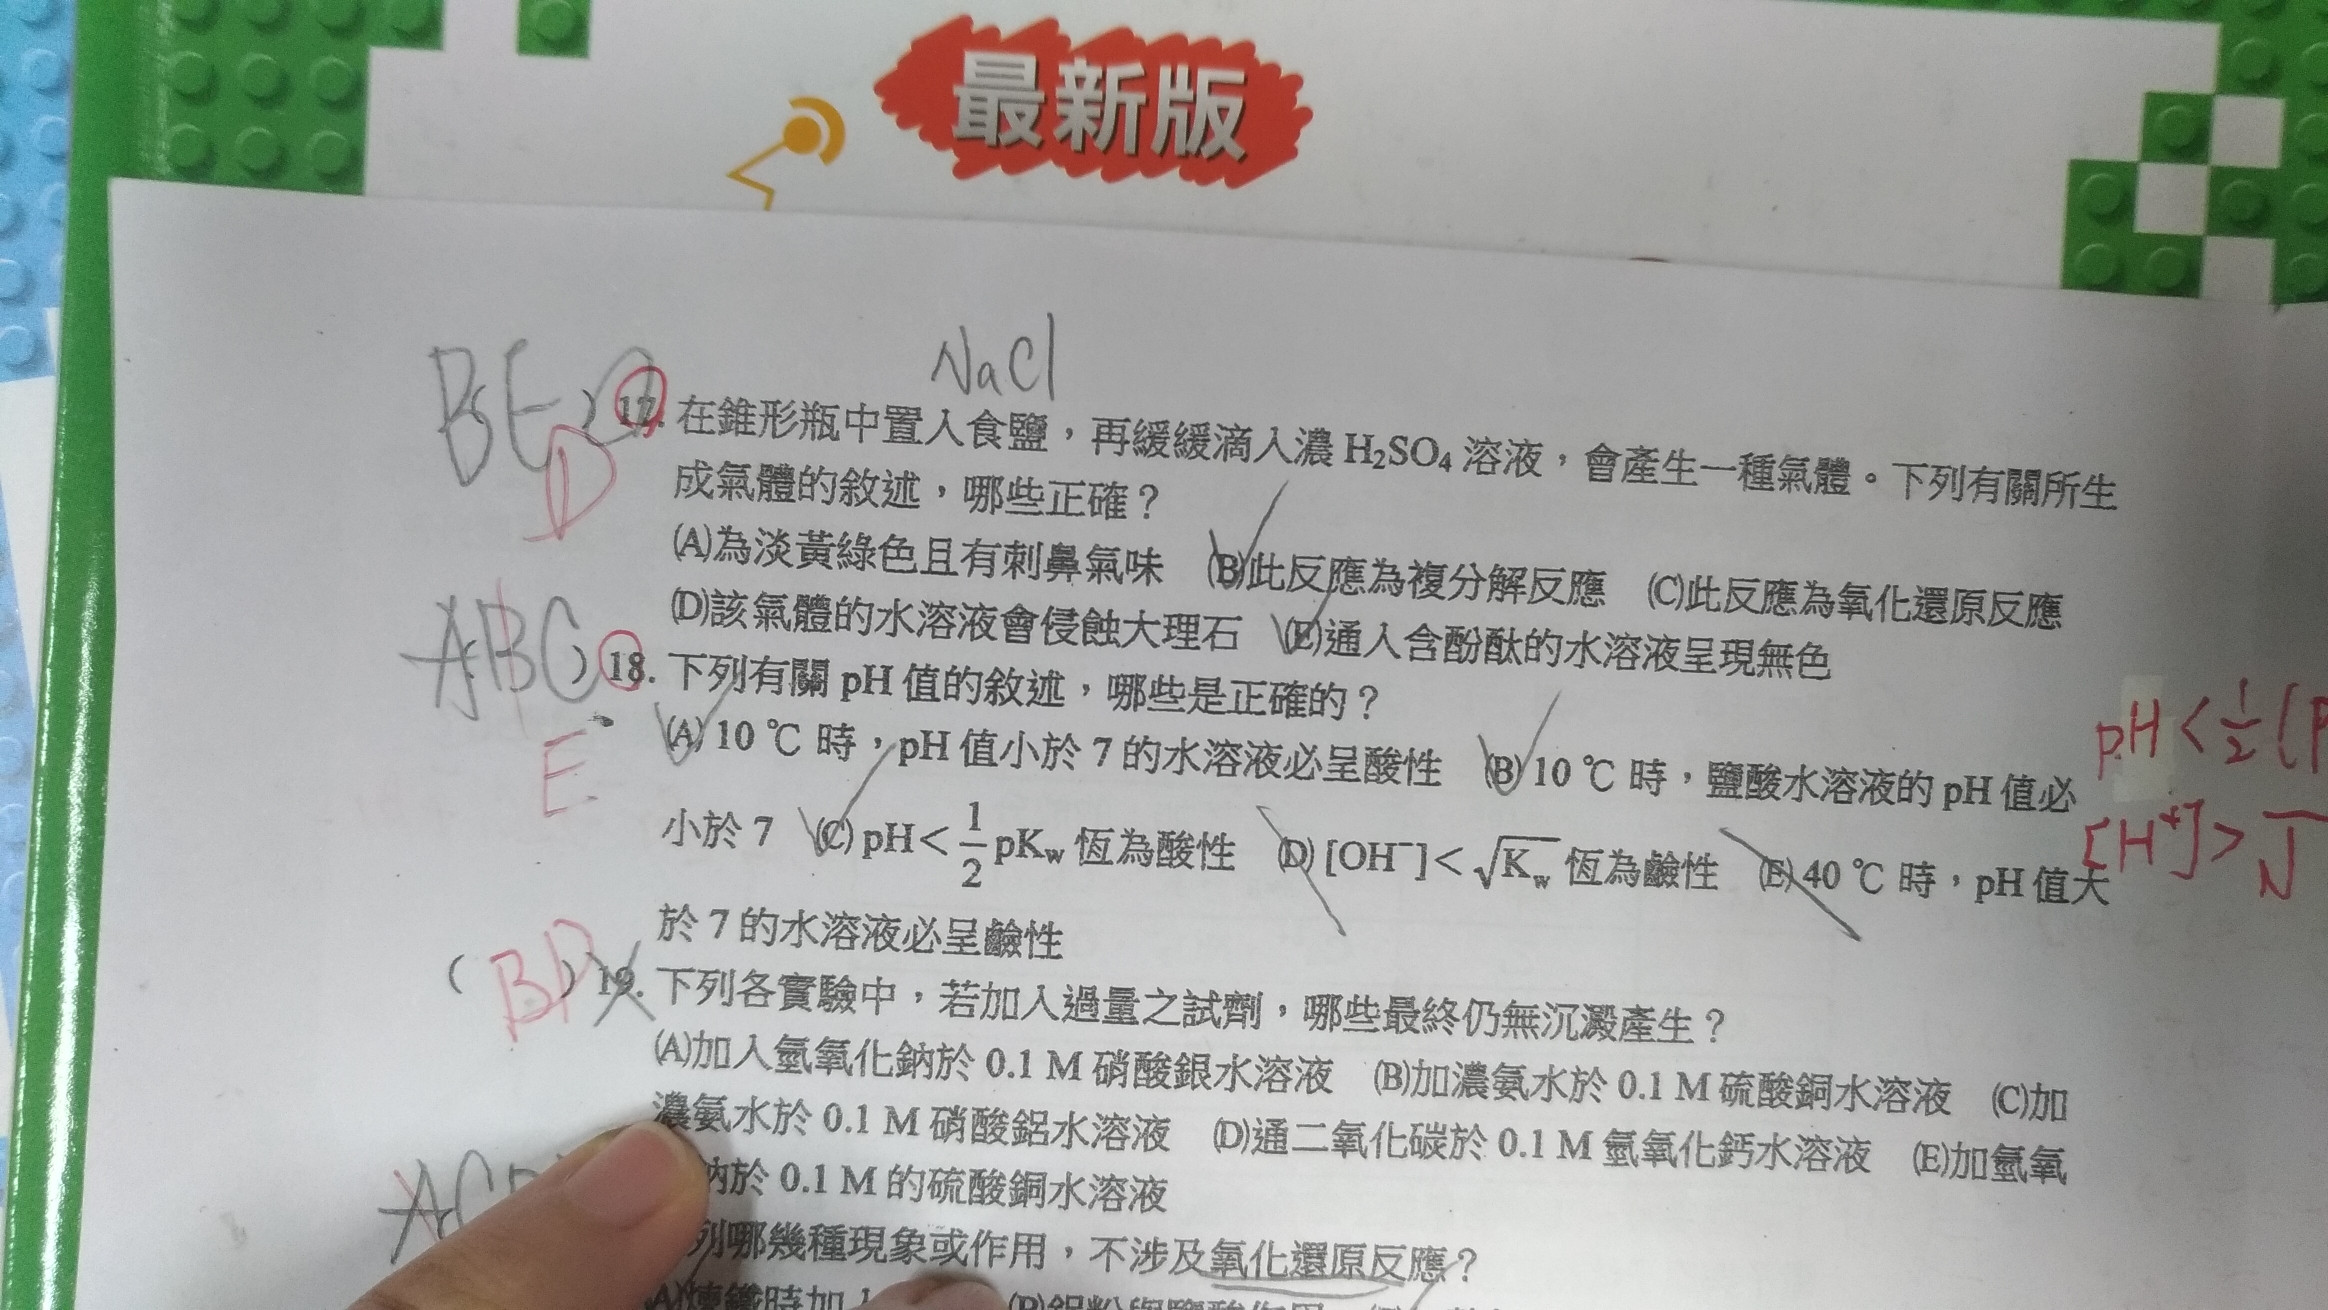 最新版
NaCl
BED
D
17. 在錐形瓶中置入食鹽，再緩緩滴入濃 H₂SO₄ 溶液，會產生一種氣體。下列有關所生
成氣體的敘述，哪些正確？
(A)為淡黃綠色且有刺鼻氣味 (B)此反應為複分解反應 (C)此反應為氧化還原反應
(D)該氣體的水溶液會侵蝕大理石 (E)通入含酚酞的水溶液呈現無色
ABC
E
) 18. 下列有關 pH 值的敘述，哪些是正確的？
(A) 10 ℃ 時，pH 值小於 7 的水溶液必呈酸性 (B) 10 ℃ 時，鹽酸水溶液的 pH 值必
小於 7 (C) pH＜1/2 pKw 恆為酸性 (D) [OH⁻]＜√Kw 恆為鹼性 (E) 40 ℃ 時，pH 值大
於 7 的水溶液必呈鹼性
pH < 1/2 (P
[H⁺] > √
( BD ) 19. 下列各實驗中，若加入過量之試劑，哪些最終仍無沉澱產生？
(A)加入氫氧化鈉於 0.1 M 硝酸銀水溶液 (B)加濃氨水於 0.1 M 硫酸銅水溶液 (C)加
濃氨水於 0.1 M 硝酸鋁水溶液 (D)通二氧化碳於 0.1 M 氫氧化鈣水溶液 (E)加氫氧
鈉於 0.1 M 的硫酸銅水溶液
AC
列哪幾種現象或作用，不涉及氧化還原反應？